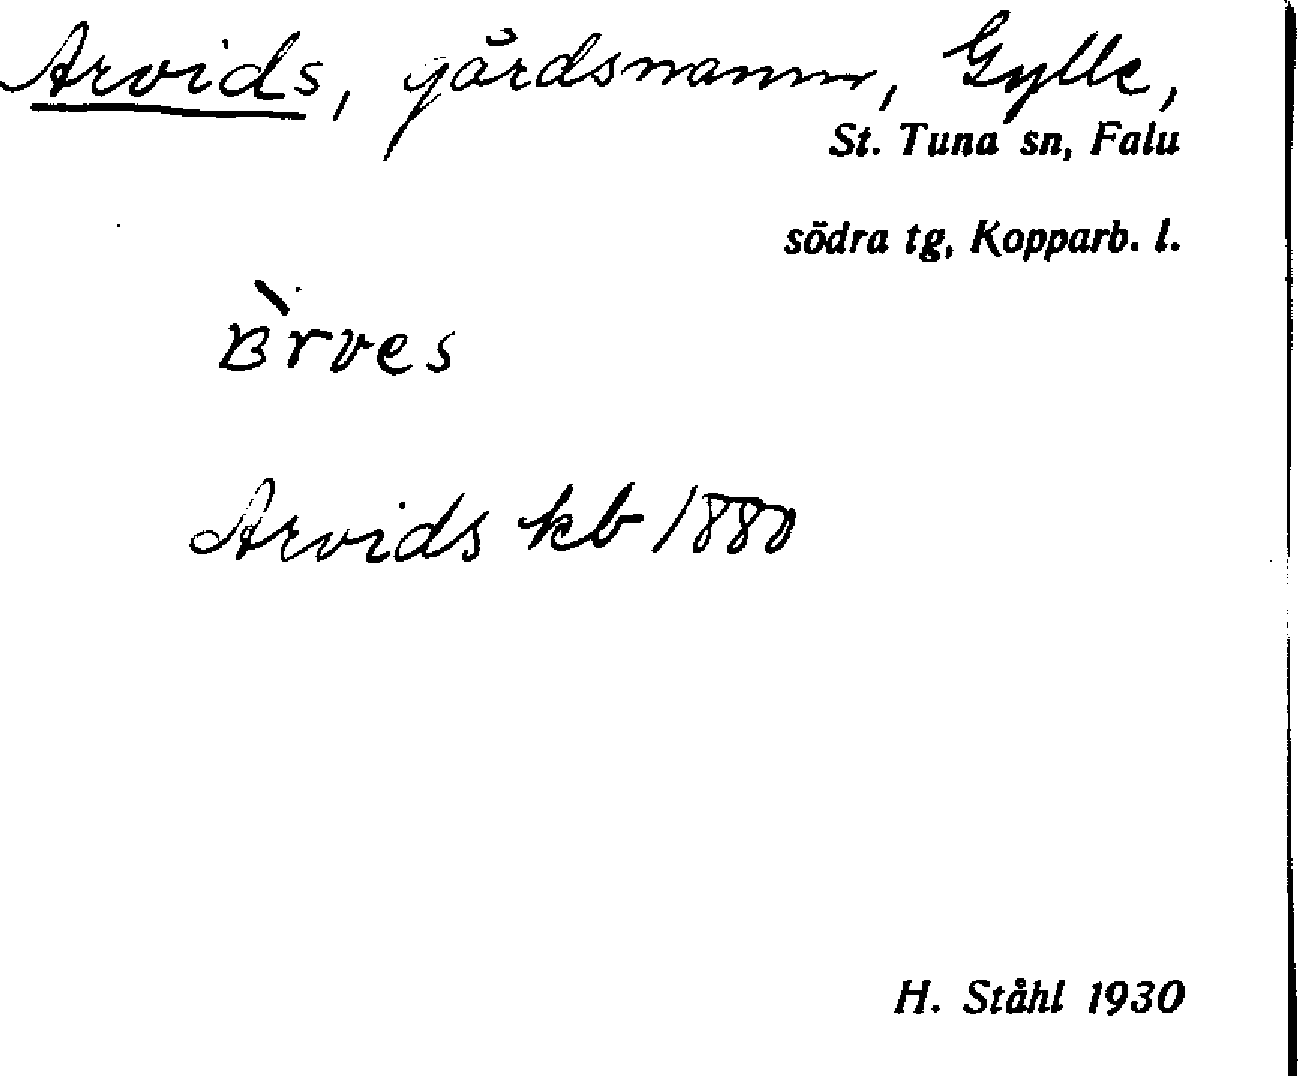 Arvids, gårdsnamn, Gylle,
St. Tuna sn, Falu
södra tg, Kopparb. l.
Arvids kb 1880
H. Ståhl 1930